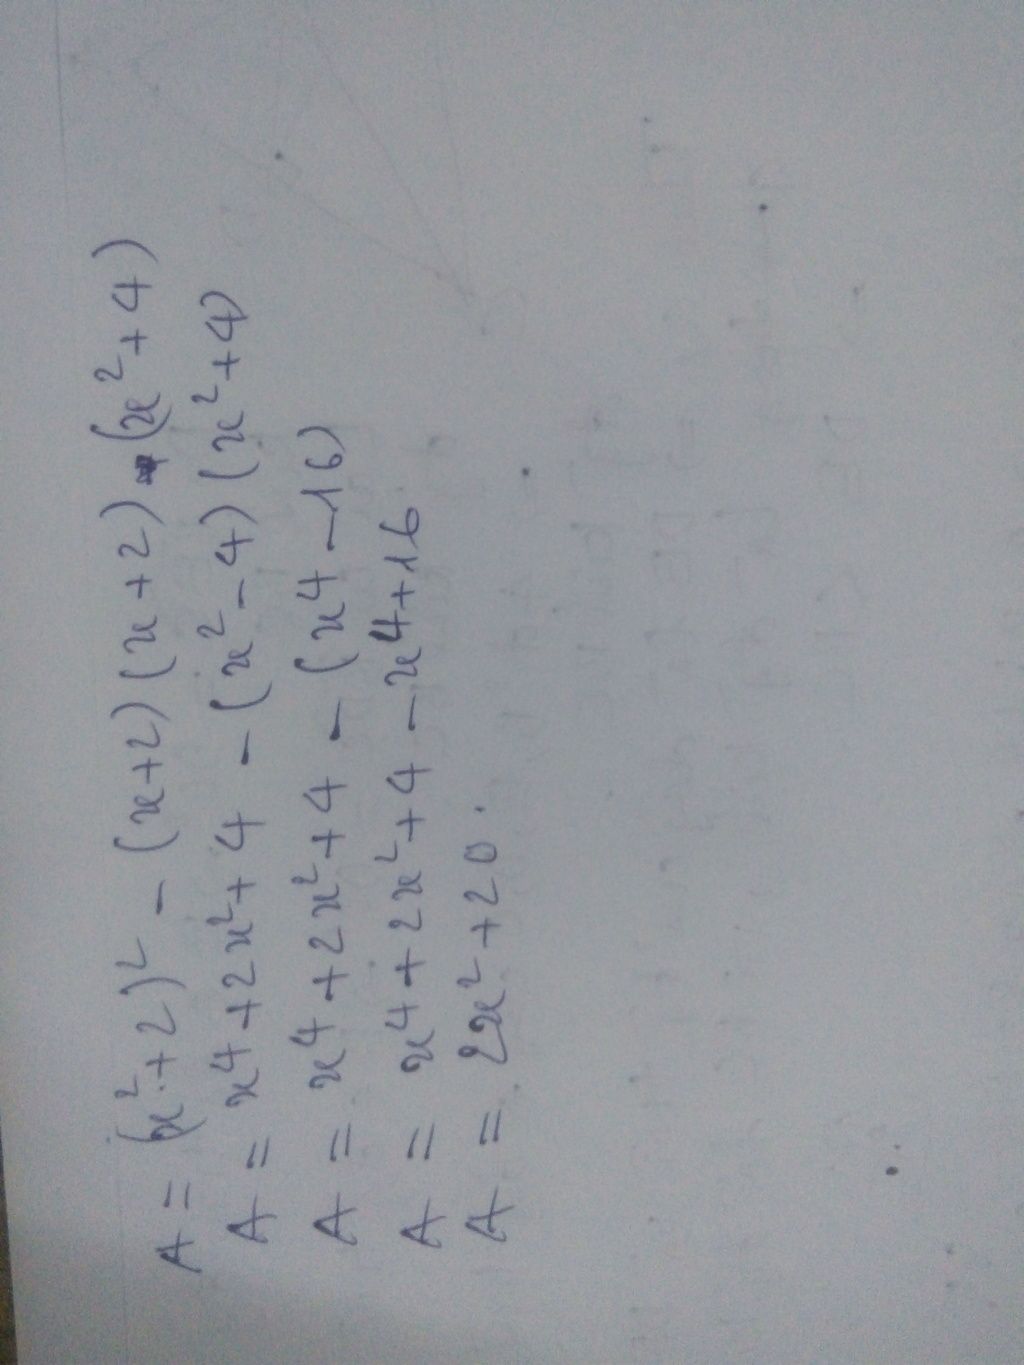 A = (x² + 2)² - (x+2)(x+2)(x² + 4)
A = x⁴ + 2x² + 4 - (x² - 4)(x² + 4)
A = x⁴ + 2x² + 4 - (x⁴ - 16)
A = x⁴ + 2x² + 4 - x⁴ + 16
A = 2x² + 20.